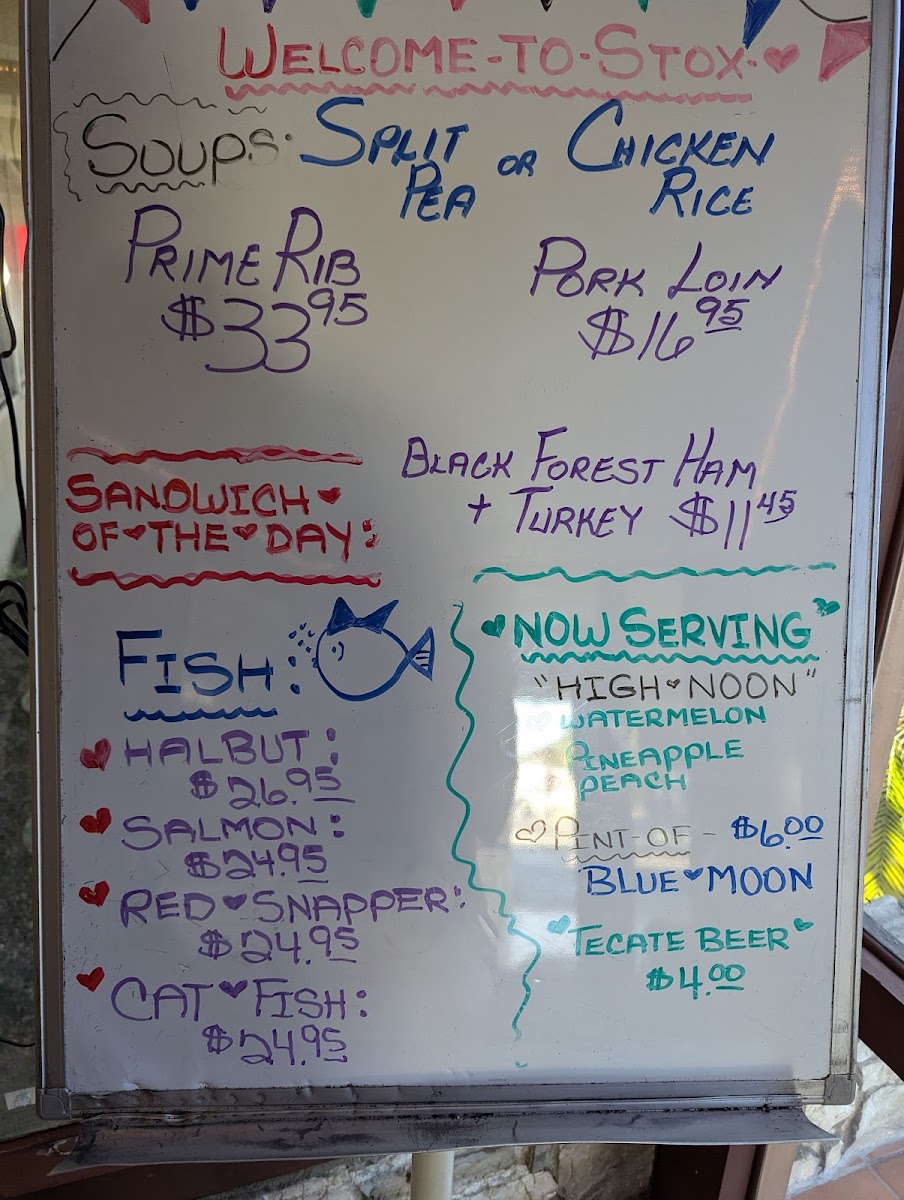 WELCOME-TO-STOX
SOUPS: SPLIT PEA OR CHICKEN RICE
PRIME RIB
$33.95
PORK LOIN
$16.95
SANDWICH
OF THE DAY:
BLACK FOREST HAM
+ TURKEY $11.45
FISH:
HALBUT:
$26.95
SALMON:
$24.95
RED SNAPPER:
$24.95
CAT FISH:
$24.95
NOW SERVING
"HIGH NOON"
WATERMELON
PINEAPPLE
PEACH
PINT-OF- $6.00
BLUE MOON
TECATE BEER
$4.00